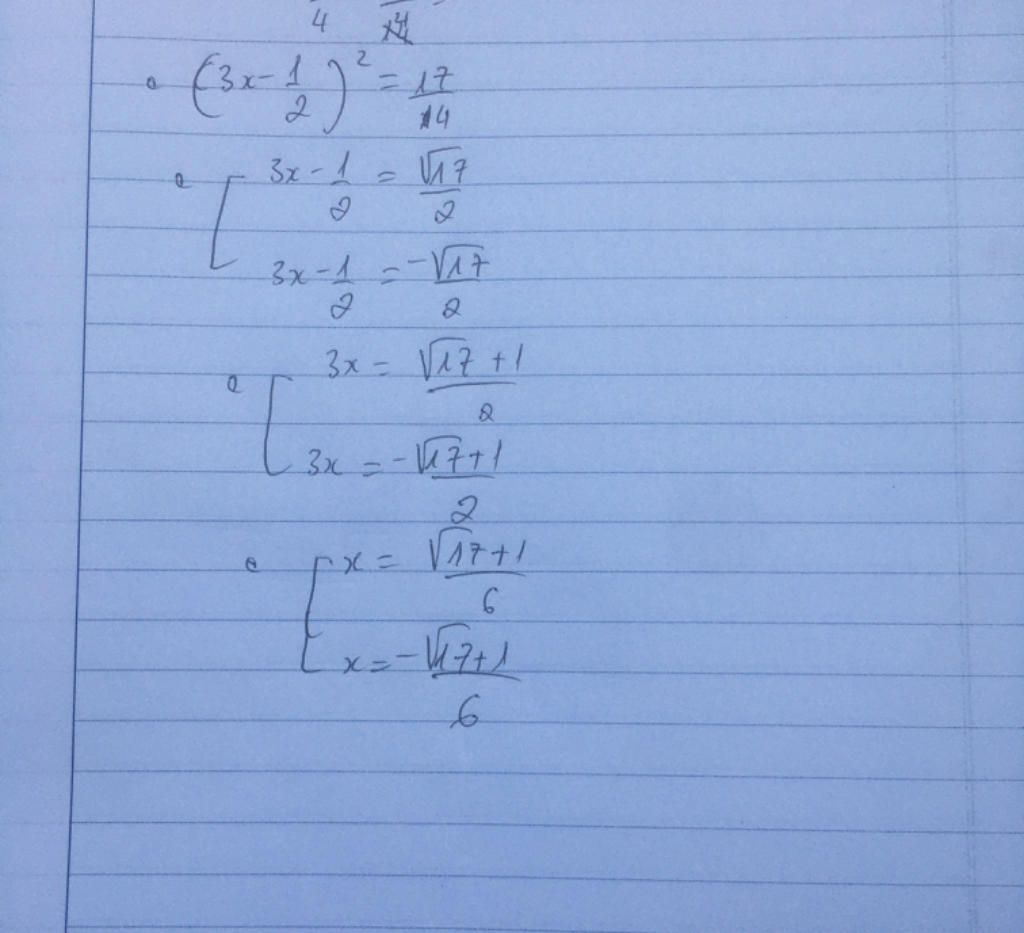 4
(3x - 1/2)² = 17/4
[ 3x - 1/2 = √17/2
3x - 1/2 = -√17/2
[ 3x = (√17 + 1)/2
3x = (-√17 + 1)/2
[ x = (√17 + 1)/6
x = (-√17 + 1)/6